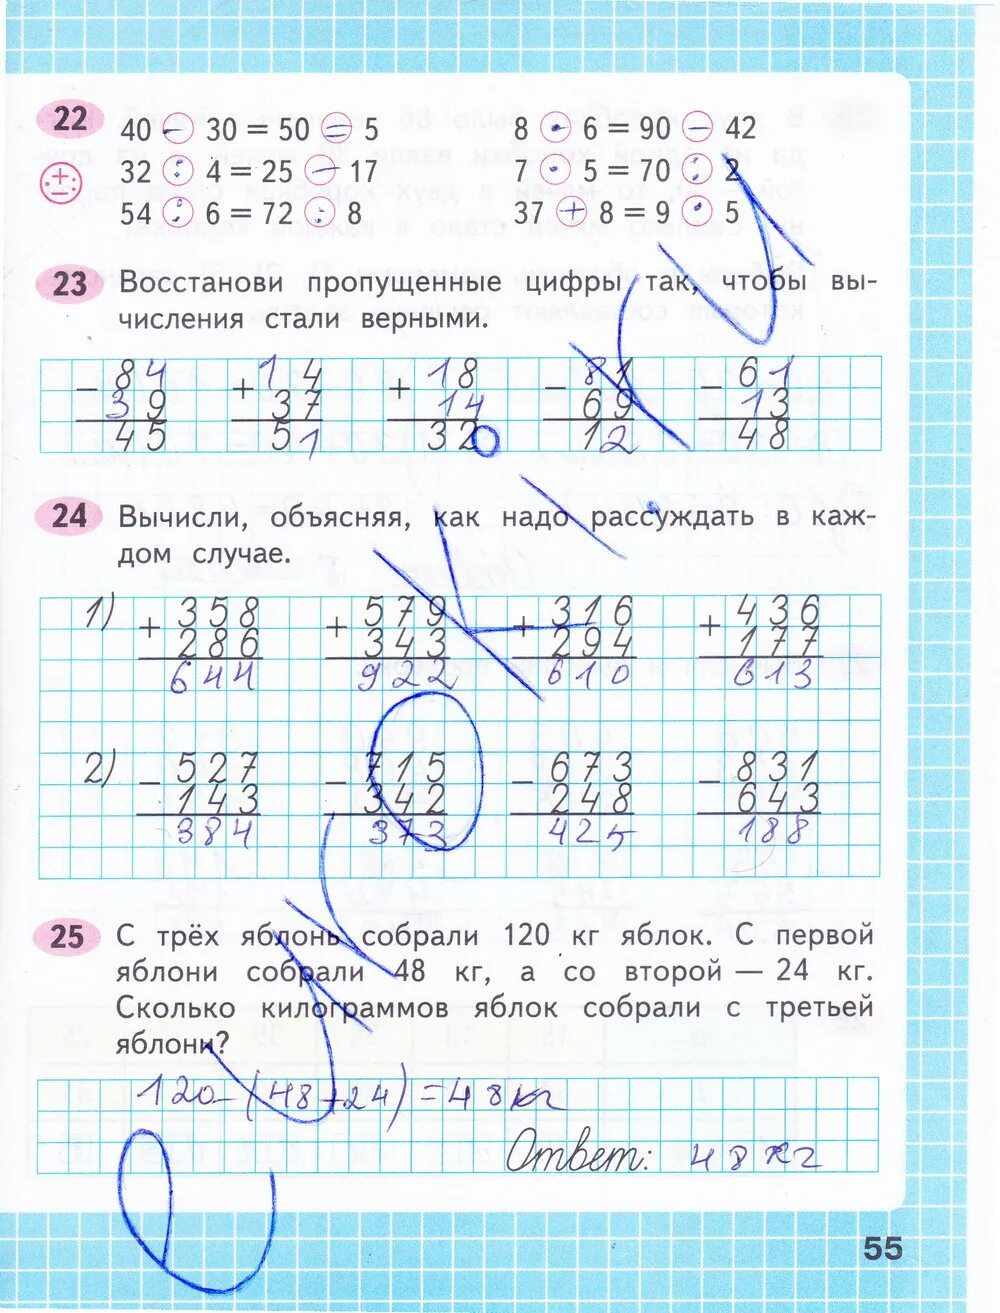 22
40 – 30 = 50 : 5
8 · 6 = 90 – 42
32 : 4 = 25 – 17
7 · 5 = 70 : 2
54 : 6 = 72 : 8
37 + 8 = 9 · 5
23 Восстанови пропущенные цифры так, чтобы вы-
числения стали верными.
– 84 + 14 + 18 – 81 – 61
39 37 14 69 13
45 51 32 12 48
24 Вычисли, объясняя, как надо рассуждать в каж-
дом случае.
1) + 358 + 579 + 316 + 436
286 343 294 177
644 922 610 613
2) – 527 – 715 – 673 – 831
143 342 248 643
384 373 425 188
25 С трёх яблонь собрали 120 кг яблок. С первой
яблони собрали 48 кг, а со второй — 24 кг.
Сколько килограммов яблок собрали с третьей
яблони?
120 – (48 + 24) = 48 кг
Ответ: 48 кг
55